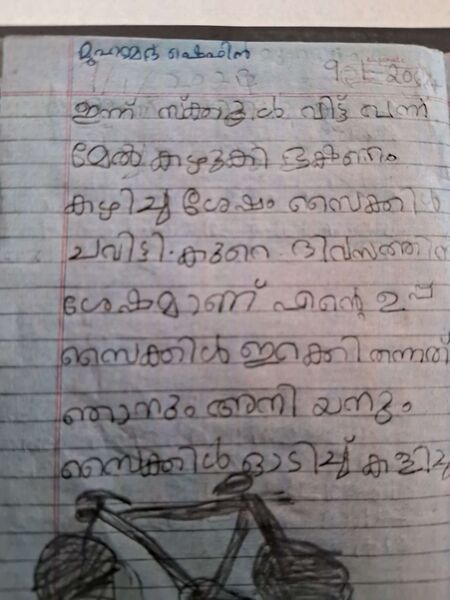 മുഹമ്മദ് ഷെഫിൻ
ഇന്ന് സ്ക്കൂൾ വിട്ട് വന്ന്
മേൽ കഴുകി ഭക്ഷണം
കഴിച്ച ശേഷം സൈക്കിൾ
ചവിട്ടി. കുറെ ദിവസത്തിന
ശേഷമാണ് എന്റെ ഉപ്പ
സൈക്കിൾ ഇറക്കി തന്നത്
ഞാനും അനിയനും
സൈക്കിൾ ഓടിച്ച് കളിച്ചു